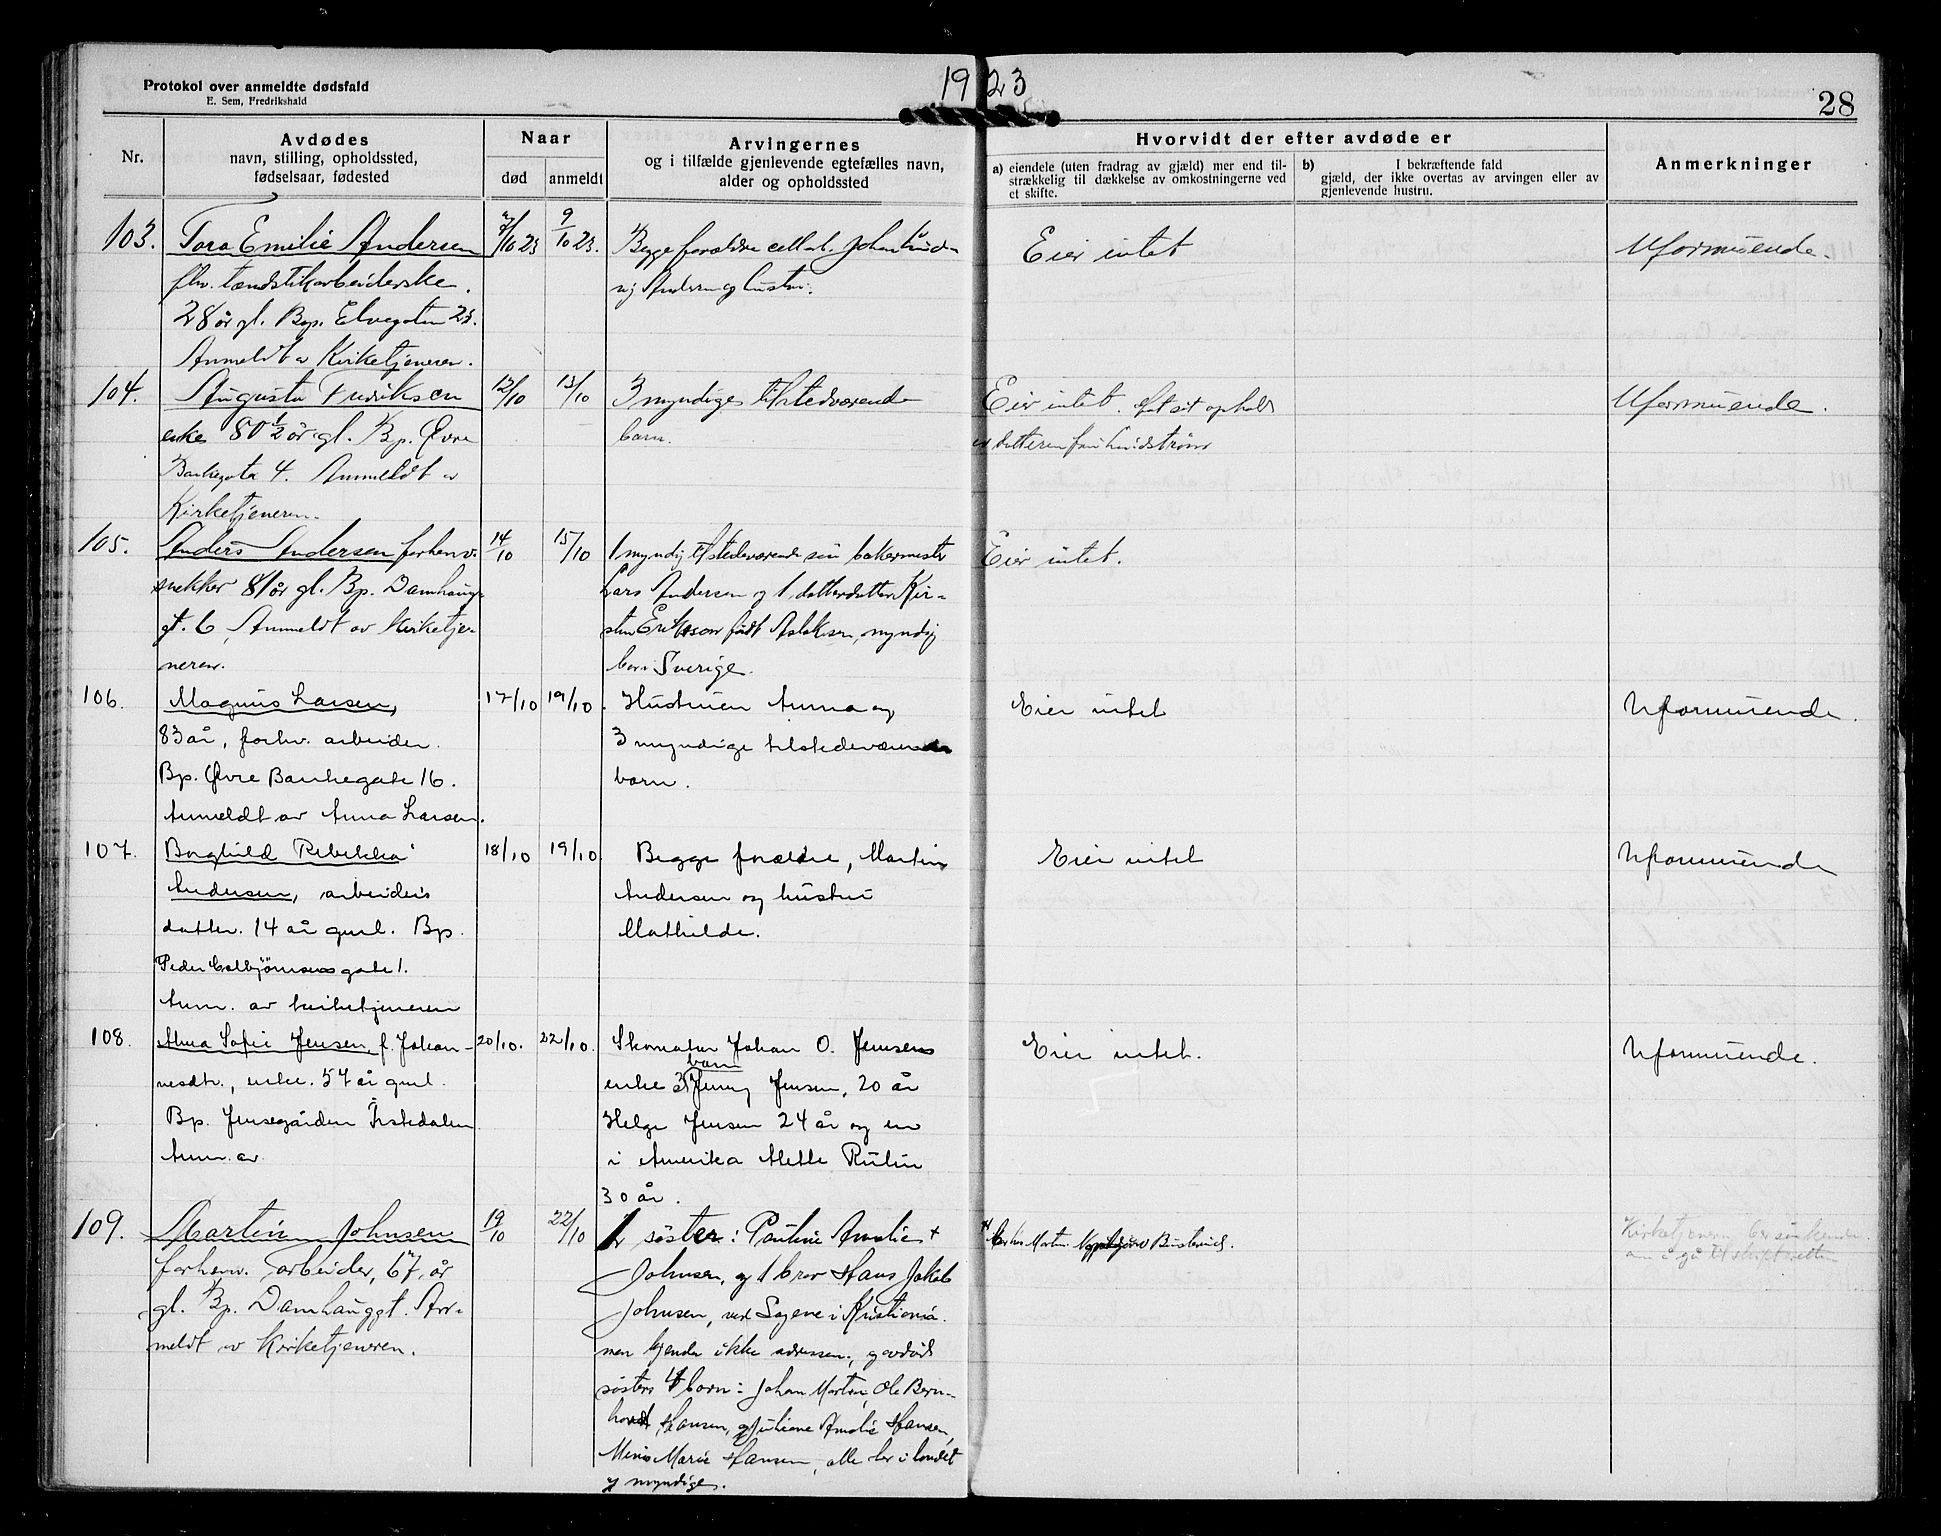 1923
28
Protokol over anmeldte dødsfald
E. Sem, Fredrikshald
Nr.
Avdødes
navn, stilling, opholdssted,
fødselsaar, fødested
Naar
død
anmeldt
Arvingernes
og i tilfælde gjenlevende egtefælles navn,
alder og opholdssted
Hvorvidt der efter avdøde er
a) eiendele (uten fradrag av gjæld) mer end til-
strækkelig til dækkelse av omkostningerne ved
et skifte.
b) I bekræftende fald
gjæld, der ikke overtas av arvingen eller av
gjenlevende hustru.
Anmerkninger
103.
Tora Emilie Andersen
fhv. tændstikarbeiderske.
28 år gl. Bop. Elvegaten 23.
Anmeldt av Kirketjeneren.
7/10 23
9/10 23.
Begge forældre
og Andersen og hustru.
Eier intet
Uformuende.
104.
Augusta Fredriksen
enke 80 1/2 år gl. Bp. Øvre
Bankegata 4. Anmeldt av
Kirketjeneren.
12/10
13/10
3 myndige tilstedværende
barn.
Eier intet. hat sit ophold
datteren fru Lundstrøm
Uformuende.
105.
Anders Andersen forhenv.
snekker 81 år gl. Bp. Damhaug-
gt. 6, Anmeldt av Kirketje-
neren.
14/10
15/10
1 myndig tilstedeværende søn bakermester
Lars Andersen og 1 datterdatter Kir-
sten Erikson født Aslaksen, myndig
bor i Sverige.
Eier intet.
106.
Magnus Larsen,
83 år, forhv. arbeider.
Bp. Øvre Bankegate 16.
Anmeldt av Anna Larsen.
17/10
19/10.
Hustruen Anna og
3 myndige tilstedeværende
barn.
Eier intet
Uformuende.
107.
Borghild Rebekka
Andersen, arbeiders
datter. 14 år gml. Bp.
Peder Colbjørnsens gate 1.
Anm. av kirketjeneren
18/10
19/10.
Begge forældre, Martin
Andersen og hustru
Mathilde.
Eier intet
Uformuende
108.
Anna Sofie Jensen f. Johan-
nesdtr., enke. 57 år gml.
Bp. Jensegården Tistedalen
Anm. av
20/10.
22/10.
Skomaker Johan O. Jensens
enke 3 barn Jenny Jensen, 20 år
Helge Jensen 24 år og en
i Amerika Mette Rulin
30 år.
Eier intet.
Uformuende.
109.
Martin Johnsen
forhenv. arbeider, 67 år
gl. Bp. Damhauggt. An-
meldt av Kirketjeneren.
19/10
22/10
1 søster: Pauline Amalie
Johnsen, og 1 bror Hans Jakob
Johnsen, ved Sagene i Kristiania.
men kjender ikke adressen, og avdød
søsters 4 barn: Johan Martin, Ole Bern-
hard Hansen, og Juliane Amalie Hansen,
Minis Marie Hansen, alle bor i landet
og myndige.
Martin
Kirketjeneren
om å gå til skifteretten